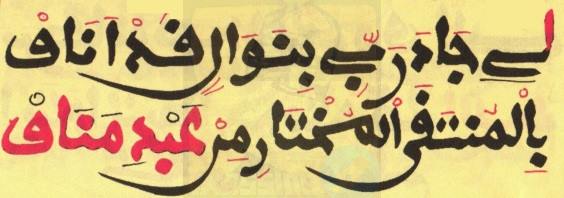 لِے جَادَ رَبِّے بِنَوَالٍ قَدْ اَنَافْ
بِالْمُنتَقَى الْمُخْتَارِ مِنْ عَبْدِ مَنَافْ